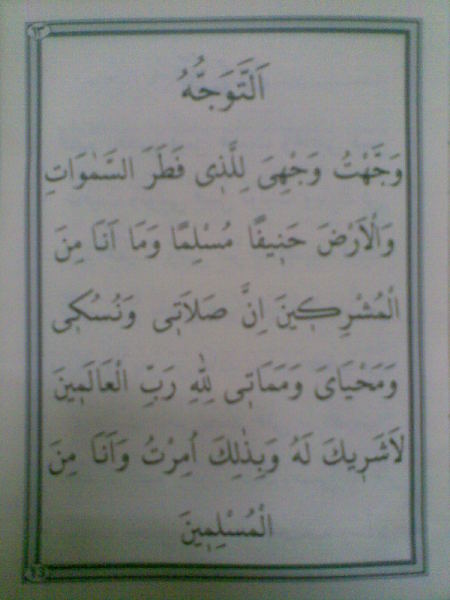 ١٣
اَلتَّوَجُّهُ
وَجَّهْتُ وَجْهِىَ لِلَّذٖى فَطَرَ السَّمٰوَاتِ
وَالْاَرْضَ حَنٖيفًا مُسْلِمًا وَمَا اَنَا مِنَ
الْمُشْرِكٖينَ اِنَّ صَلَاتٖى وَنُسُكٖى
وَمَحْيَاىَ وَمَمَاتٖى لِلّٰهِ رَبِّ الْعَالَمٖينَ
لَاشَرٖيكَ لَهُ وَبِذٰلِكَ اُمِرْتُ وَاَنَا مِنَ
الْمُسْلِمٖينَ
13